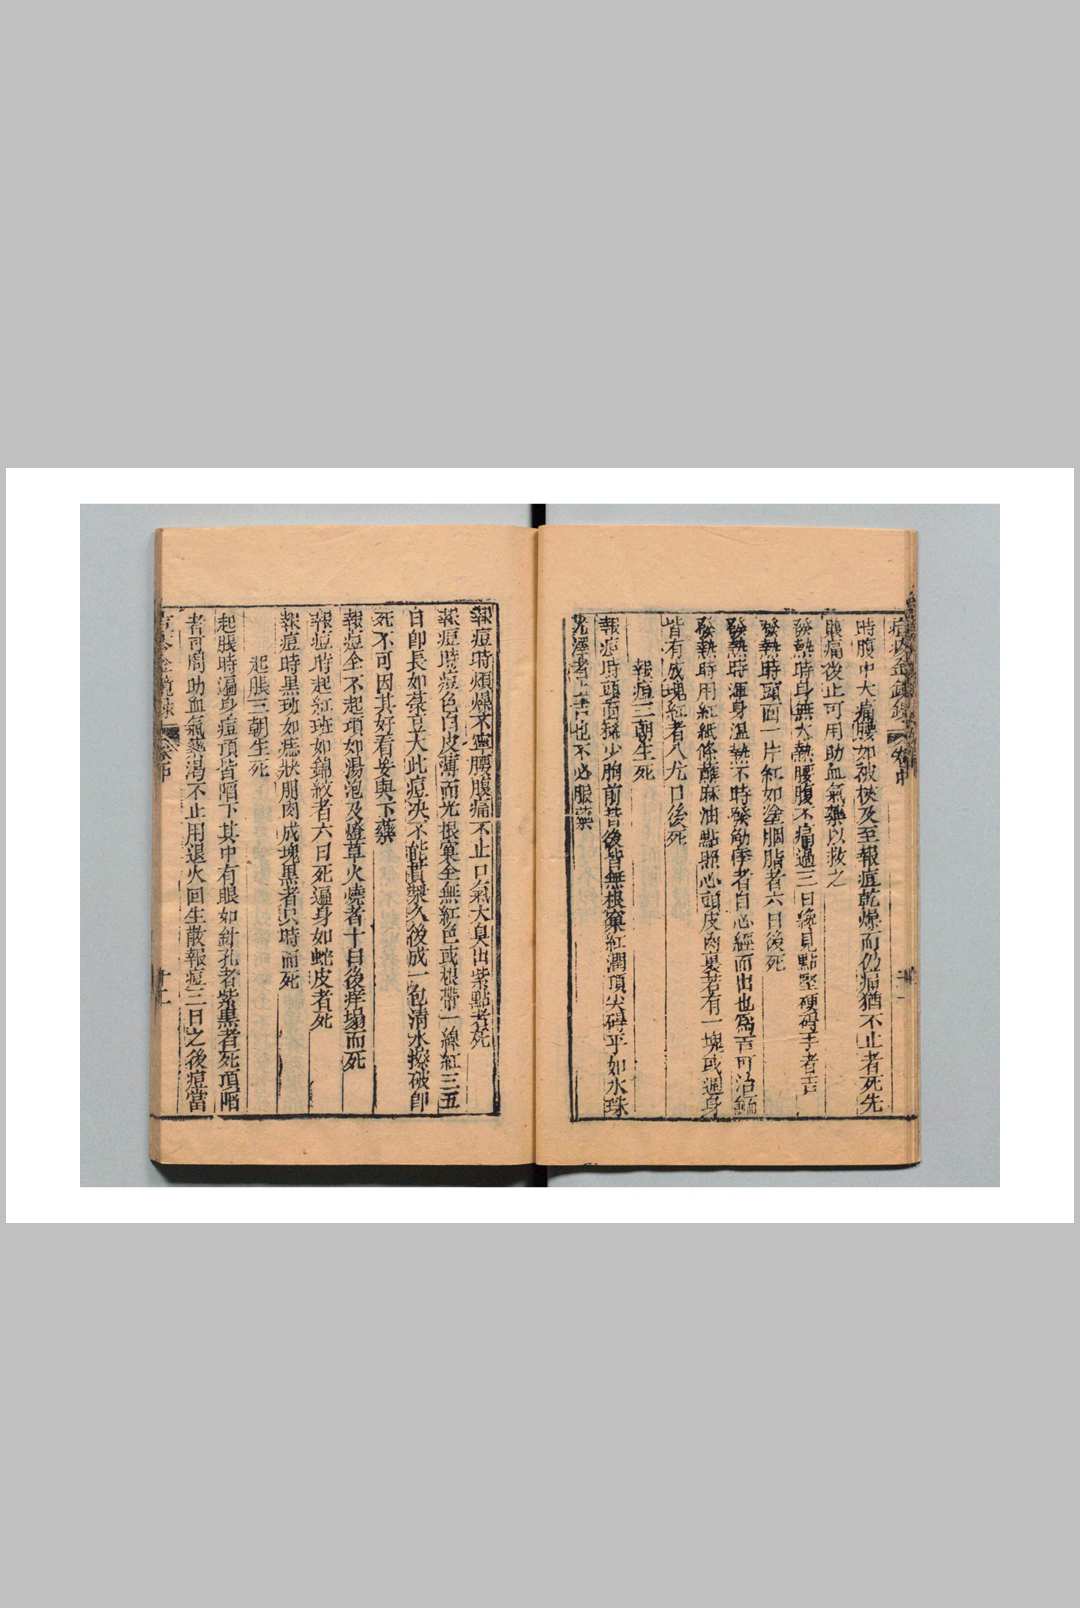 痘疹金鏡錄 卷中
時腹中大痛腰如被杖及至報痘乾燥而仍痛猶不止者死先
腹痛後止可用助血氣藥以救之
發熱時身無大熱腰腹不痛過三日纔見點堅硬碍手者吉
發熱時頭面一片紅如塗胭脂者六日後死
發熱時渾身溫熱不時發 者自心經而出也 吉可治
發熱時用紅紙條蘸麻油點照心頭皮肉裏若有一塊或遍身
皆有成塊紅者八九日後死
報痘三朝生死
報痘時頭面稀少胸前背後皆無根窠紅潤頂尖碍手如水珠
光澤者上吉也不必服藥
報痘時煩燥不寧腰腹痛不止口氣大臭出紫點者死
報痘時痘色白皮薄而光根窠全無紅色或根帶一線紅三五
日即長如菉豆大此痘决不能貫漿久後成一包清水擦破即
死不可因其好看妄與下藥
報痘全不起頂如湯泡及燈草火燒者十日後痒塌而死
報痘時起紅班如錦紋者六日死遍身如蛇皮者死
報痘時黑班如痣狀肌肉成塊黑者只時而死
起脹三朝生死
起脹時遍身痘頂皆陷下其中有眼如針孔者紫黑者死頂陷
者可用助血氣藥渴不止用退火回生散報痘三日之後痘當
痘疹金鏡錄 卷中 十二